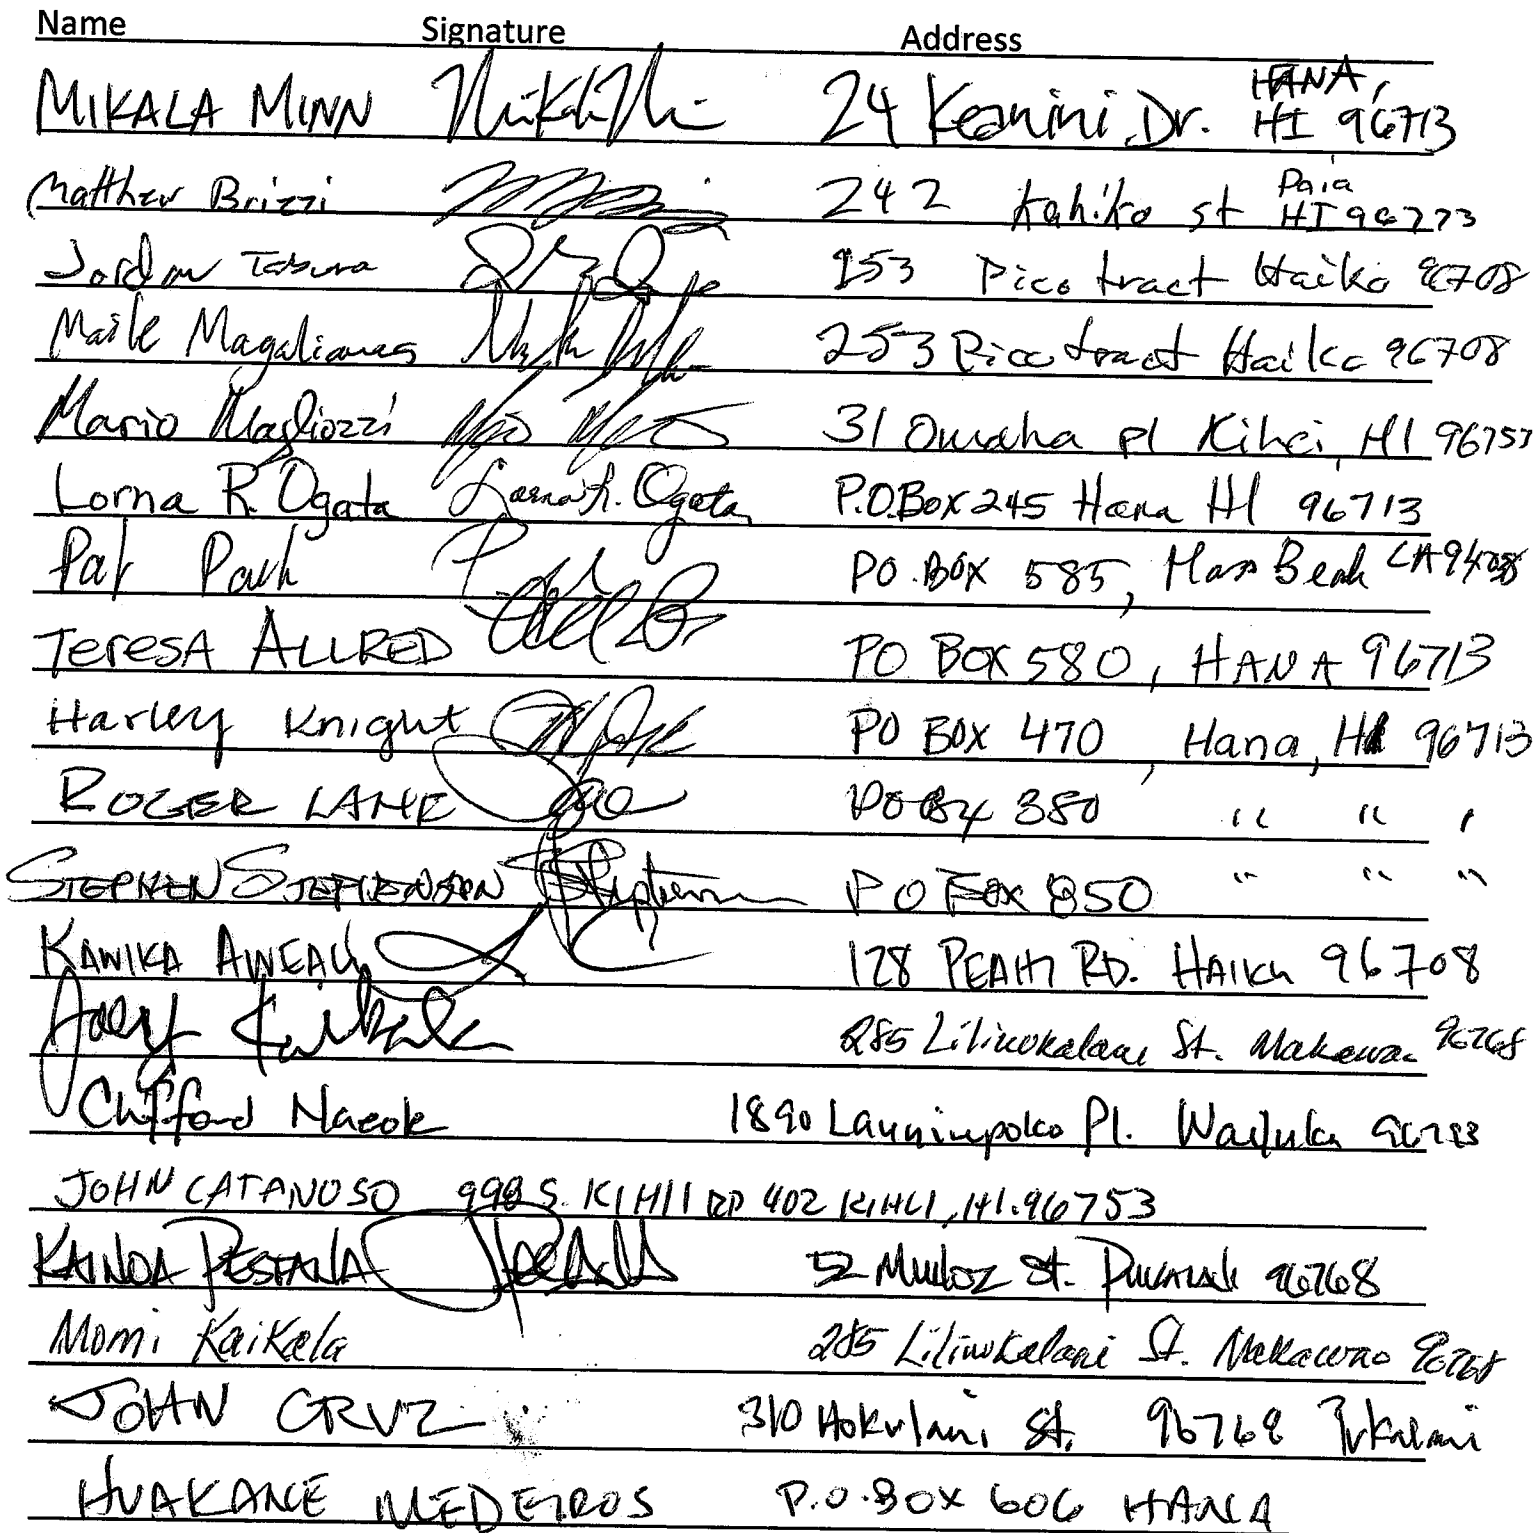 Name Signature Address
MIKALA MINN 24 Keanini Dr. HANA, HI 96713
Matthew Brizzi 242 Kahiko st Paia HI 96773
Jordan Tabura 253 Pico tract Haiku 96708
Maile Magalianes 253 Pico tract Haiku 96708
Mario Magliozzi 31 Omaha pl Kihei, HI 96753
Lorna R. Ogata Lorna R. Ogata P.O.Box 245 Hana HI 96713
Pat PO.BOX 585, Beach CA
Teresa ALLRED PO BOX 580, HANA 96713
Harley Knight PO BOX 470, Hana, HI 96713
ROGER LANE PO Bx 380 " " "
STEPHEN STEPHENSON PO Box 850 " " "
KAWIKA AWEAU 128 PEAHI RD. HAIKU 96708
Joey Kaikala 285 Liliuokalani St. Makawao 96768
Clifford Naeole 1890 Launiupoko Pl. Wailuku 96793
JOHN CATANOSO 998 S. KIHII RD 402 KIHEI, HI. 96753
KAINOA PESTANA 52 Muloz St. Pukalani 96768
Momi Kaikala 285 Liliuokalani St. Makawao 96768
JOHN CRUZ 310 Hokulani St. 96768 Pukalani
HUAKANE MEDEIROS P.O.BOX 606 HANA